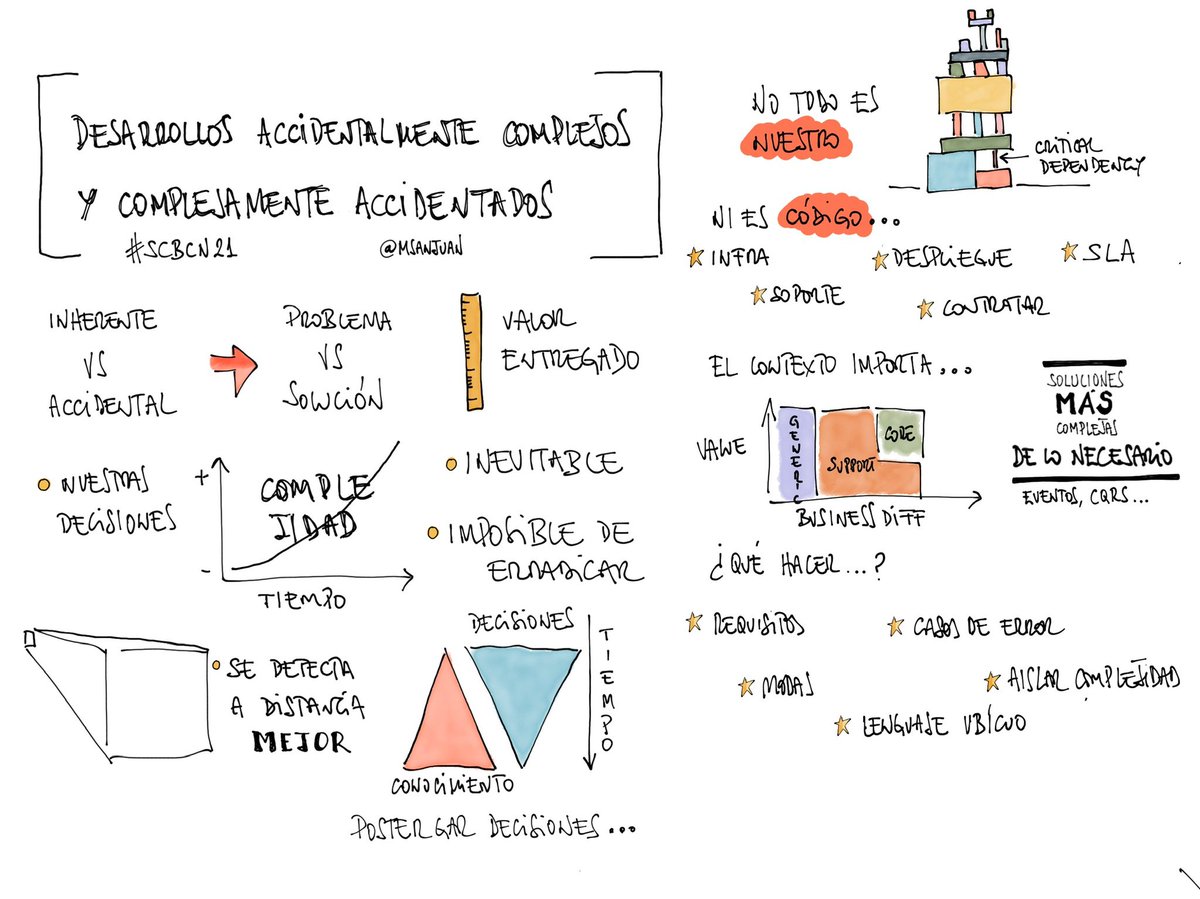 DESARROLLOS ACCIDENTALMENTE COMPLEJOS
Y COMPLEJAMENTE ACCIDENTADOS
#SCBCN21
@MSANJUAN
INHERENTE
VS
ACCIDENTAL
PROBLEMA
VS
SOLUCIÓN
VALOR
ENTREGADO
NUESTRAS
DECISIONES
+
COMPLE
JIDAD
-
TIEMPO
INEVITABLE
IMPOSIBLE DE
ERRADICAR
SE DETECTA
A DISTANCIA
MEJOR
DECISIONES
TIEMPO
CONOCIMIENTO
POSTERGAR DECISIONES...
NO TODO ES
NUESTRO
CRITICAL
DEPENDENCY
NI ES CÓDIGO...
INFRA
DESPLIEGUE
SLA
SOPORTE
CONTRATAR
EL CONTEXTO IMPORTA...
VALUE
GENERIC
SUPPORT
CORE
BUSINESS DIFF
SOLUCIONES
MÁS
COMPLEJAS
DE LO NECESARIO
EVENTOS, CQRS...
¿QUÉ HACER...?
REQUISITOS
CASOS DE ERROR
MODAS
AISLAR COMPLEJIDAD
LENGUAJE UBÍCUO